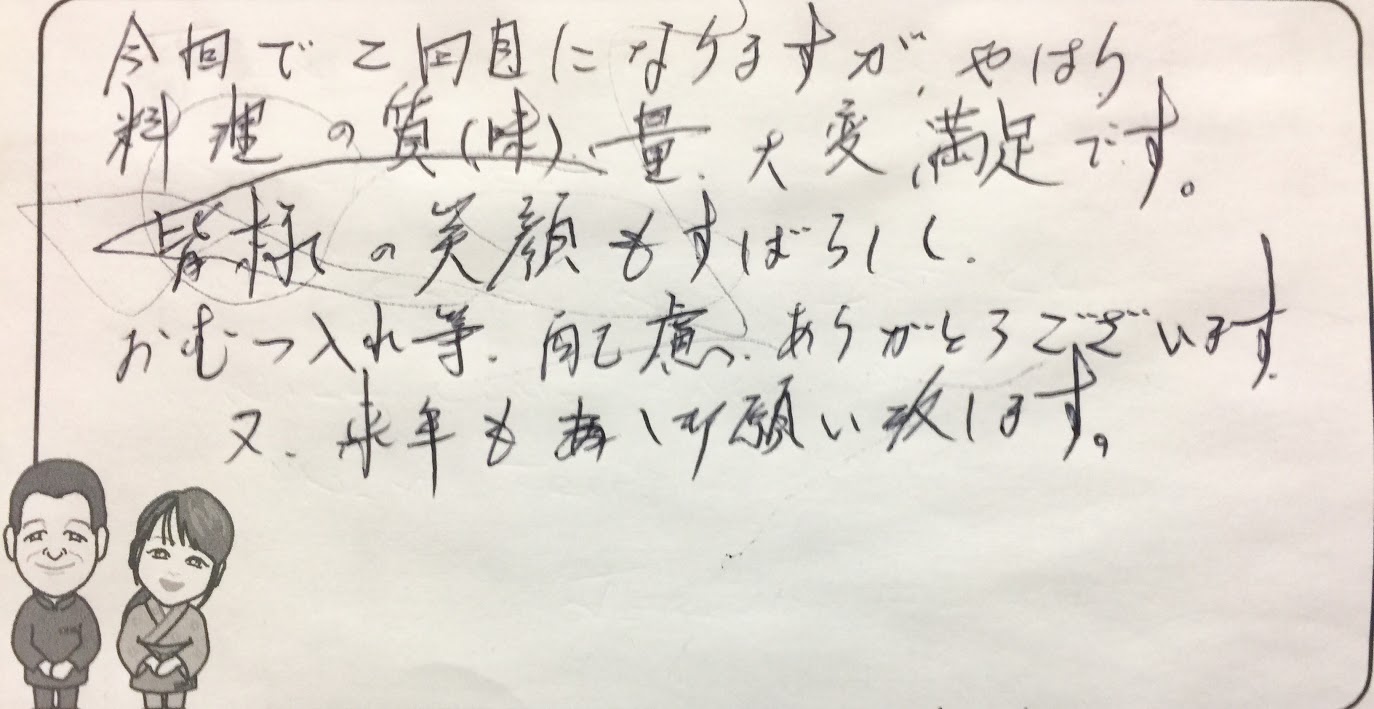 今回で2回目になりますが、やはり
料理の質(味)、量、大変満足です。
皆様の笑顔もすばらしく、
おむつ入れ等、配慮、ありがとうございます
又、来年も宜しくお願い致します。